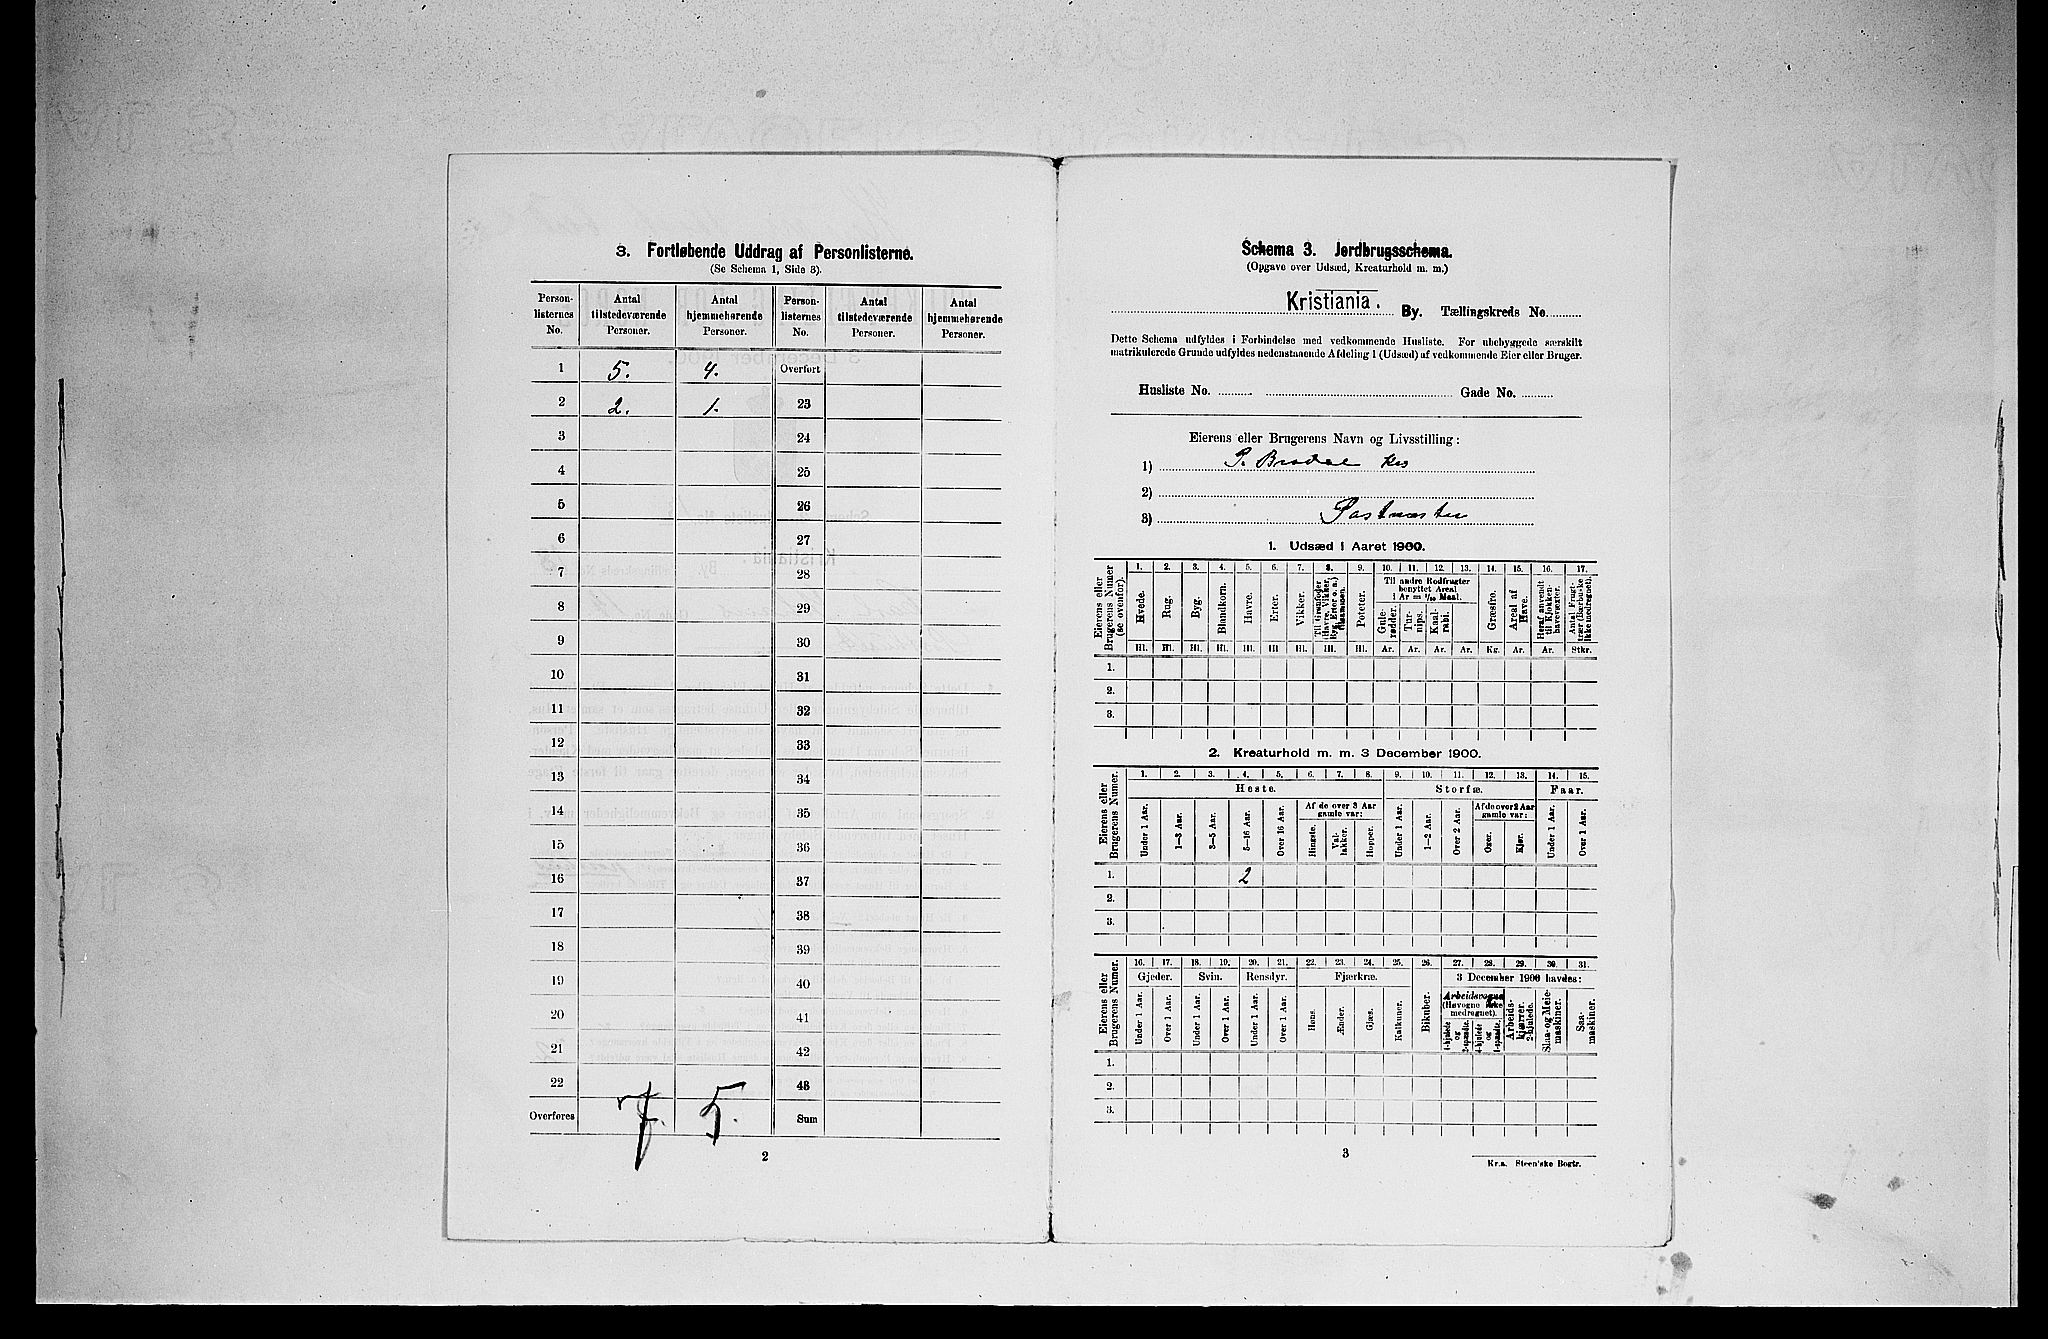 3. Fortløbende Uddrag af Personlisterne.
(Se Schema 1, Side 3).
Person-listernes No. | Antal tilstedeværende Personer. | Antal hjemmehørende Personer. | Person-listernes No. | Antal tilstedeværende Personer. | Antal hjemmehørende Personer.
1 5. 4. Overført
2 2. 1. 23
3 24
4 25
5 26
6 27
7 28
8 29
9 30
10 31
11 32
12 33
13 34
14 35
15 36
16 37
17 38
18 39
19 40
20 41
21 42
22 43
Overføres 7. 5. Sum
2
Schema 3. Jordbrugsschema.
(Opgave over Udsæd, Kreaturhold m. m.)
Kristiania. By. Tællingskreds No.
Dette Schema udfyldes i Forbindelse med vedkommende Husliste. For ubebyggede særskilt
matrikulerede Grunde udfyldes nedenstaaende Afdeling 1 (Udsæd) af vedkommende Eier eller Bruger.
Husliste No. Gade No.
Eierens eller Brugerens Navn og Livsstilling:
1) P. Brodal
2)
3) Postmester
1. Udsæd i Aaret 1900.
Eierens eller Brugerens Numer (se ovenfor).
1. 2. 3. 4. 5. 6. 7. 8. 9. 10. 11. 12. 13. 14. 15. 16. 17.
Hvede. Rug. Byg. Blandkorn. Havre. Erter. Vikker. Til Grønfoder (Havre, Vikker, Byg, Erter o. a.) tilsammen. Poteter.
Til andre Rodfrugter benyttet Areal i Ar = 1/10 Maal.
Gulerødder. Turnips. Kaalrabi. Græsfrø. Areal af Have. Heraf anvendt til Kjøkkenhavevæxter. Antal Frugttrær (Bærbuske ikke medregnet).
Hl. Hl. Hl. Hl. Hl. Hl. Hl. Hl. Hl. Ar. Ar. Ar. Ar. Kg. Ar. Ar. Stkr.
1.
2.
3.
2. Kreaturhold m. m. 3 December 1900.
Eierens eller Brugerens Numer.
1. 2. 3. 4. 5. 6. 7. 8. 9. 10. 11. 12. 13. 14. 15.
Heste. Storfæ. Faar.
Under 1 Aar. 1—3 Aar. 3—5 Aar. 5—16 Aar. Over 16 Aar. Af de over 3 Aar gamle var: Hingste. Vallakker. Hopper. Under 1 Aar. 1—2 Aar. Over 2 Aar. Af de over 2 Aar gamle var: Oxer. Kjør. Under 1 Aar. Over 1 Aar.
1. 2
2.
3.
Eierens eller Brugerens Numer.
16. 17. 18. 19. 20. 21. 22. 23. 24. 25. 26. 27. 28. 29. 30. 31.
Gjeder. Svin. Rensdyr. Fjærkræ. 3 December 1900 havdes:
Under 1 Aar. Over 1 Aar. Under 1 Aar. Over 1 Aar. Under 1 Aar. Over 1 Aar. Høns. Ænder. Gjæs. Kalkuner. Bikuber. Arbeidsvogne (Høvogne ikke medregnet). 4-hjulede og 2-spændte. 4-hjulede og 1-spændte. Arbeidskjærrer, 2-hjulede. Slaa- og Meiemaskiner. Saamaskiner.
1.
2.
3.
3
Kr.a. Steen'ske Bogtr.